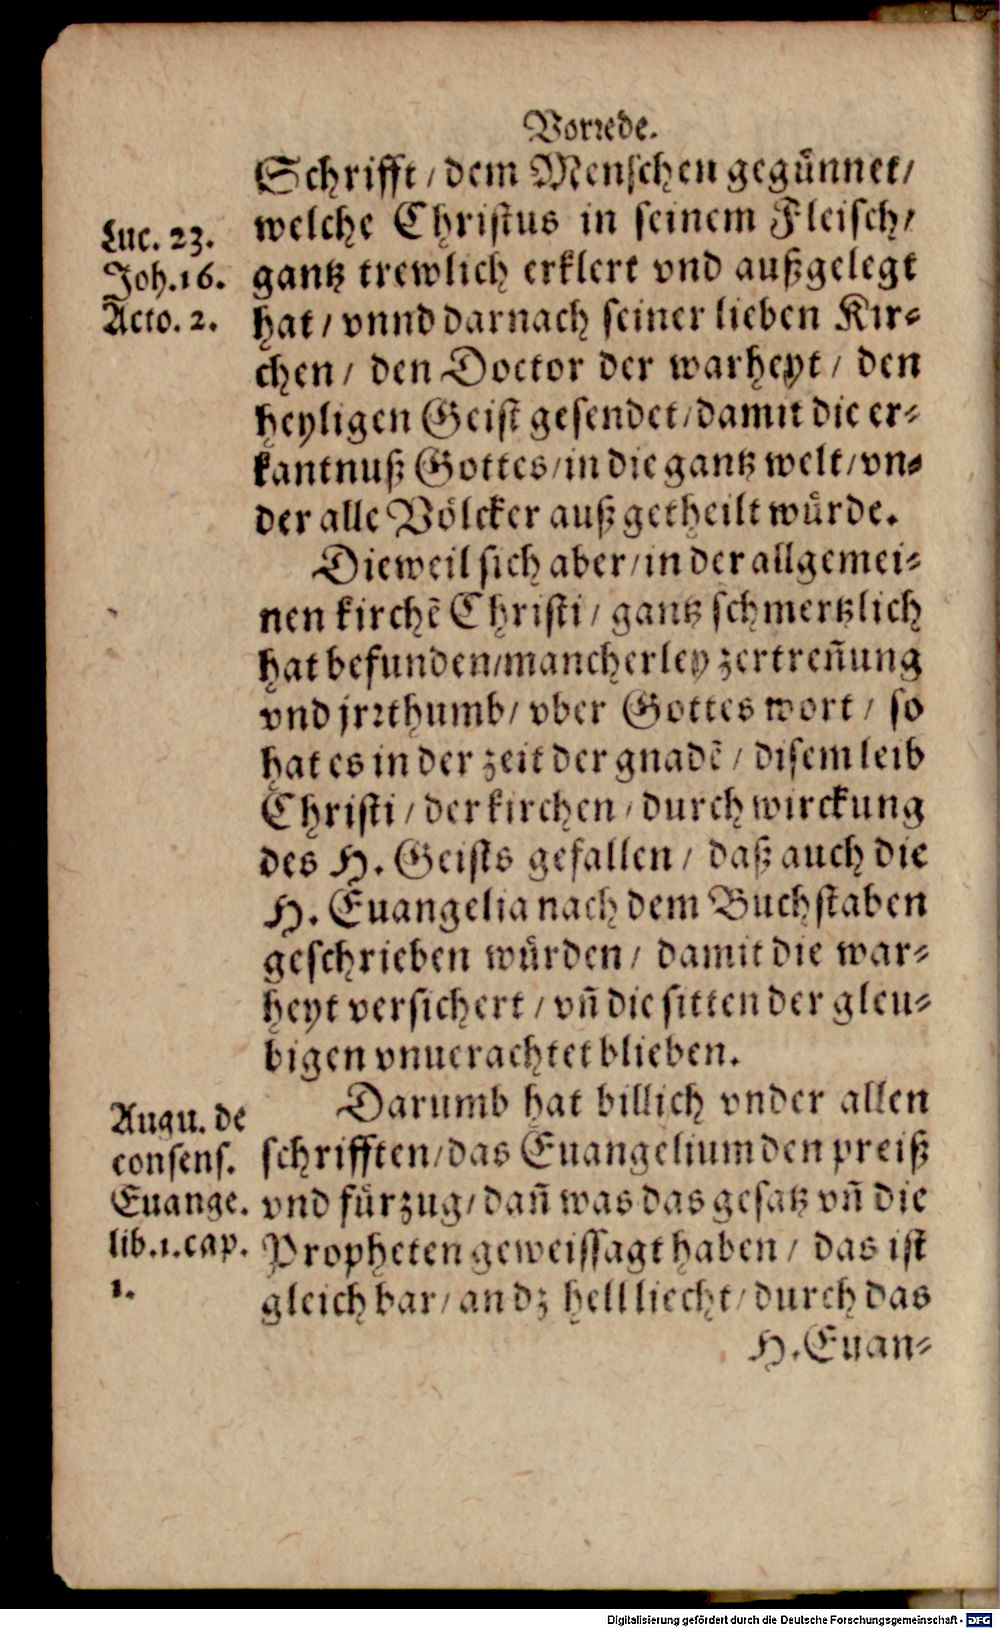 Vorꝛede.
Schrifft / dem Menschen gegünnet /
welche Christus in seinem Fleisch /
Luc. 23.
gantz trewlich erklert vnd außgelegt
Joh. 16.
hat / vnnd darnach seiner lieben Kir-
Acto. 2.
chen / den Doctor der warheyt / den
heyligen Geist gesendet / damit die er-
kantnuß Gottes / in die gantz welt / vn-
der alle Völcker auß getheilt würde.
Dieweil sich aber / in der allgemei-
nen kirchẽ Christi / gantz schmertzlich
hat befunden / mancherley zertreñung
vnd jrꝛthumb / vber Gottes wort / so
hat es in der zeit der gnadẽ / disem leib
Christi / der kirchen / durch wirckung
des H. Geists gefallen / daß auch die
H. Euangelia nach dem Buchstaben
geschrieben würden / damit die war-
heyt versichert / vñ die sitten der gleu-
bigen vnuerachtet blieben.
Darumb hat billich vnder allen
Augu. de
consens.
Euange.
lib. 1. cap.
1.
schrifften / das Euangelium den preiß
vnd fürzug / dañ was das gesatz vñ die
Propheten geweissagt haben / das ist
gleich bar / an dz hell liecht / durch das
H. Euan-
Digitalisierung gefördert durch die Deutsche Forschungsgemeinschaft - DFG